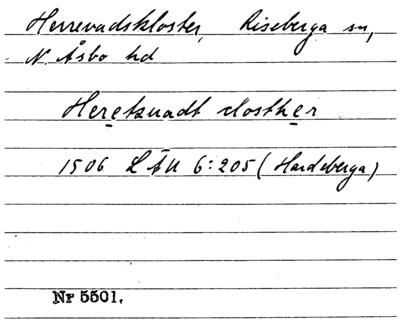 Herrevadskloster, Riseberga sn,
N. Åsbo hd
Heretzuadt closther
1506 LÄU 6:205 (Hardeberga)
Nr 5501.